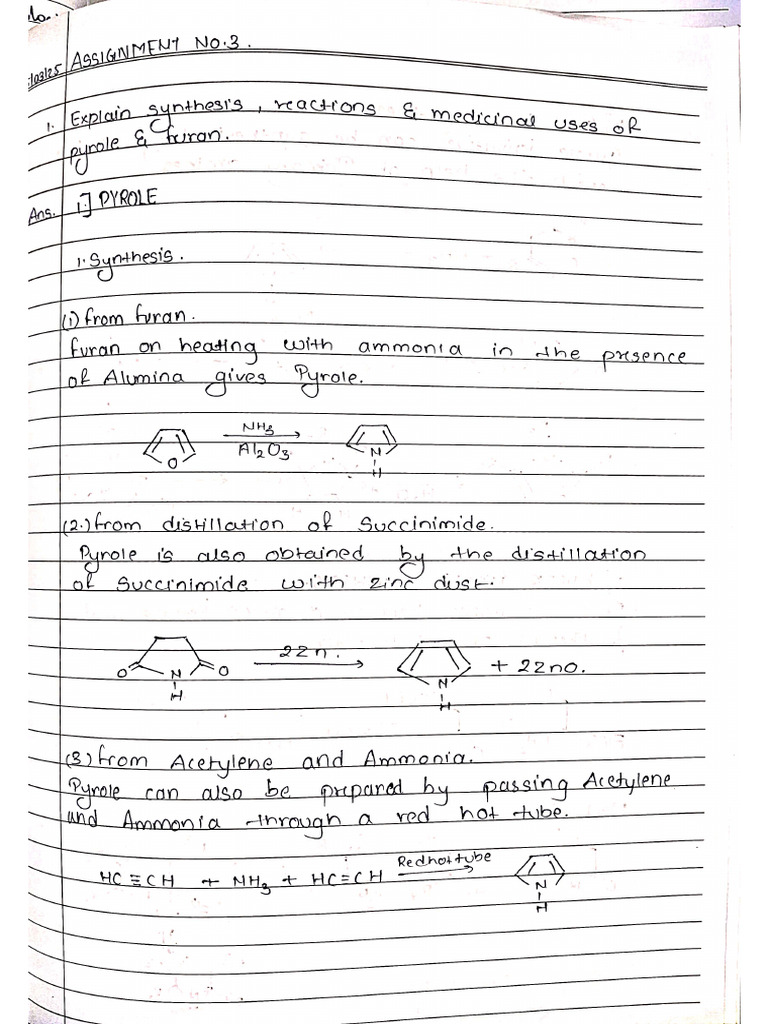 No.
/03/25 ASSIGNMENT NO.3.
1. Explain synthesis, reactions & medicinal uses of
pyrole & furan.
Ans. 1.] PYROLE
1. Synthesis.
(1) from furan.
furan on heating with ammonia in the presence
of Alumina gives Pyrole.
NH3
Al2O3
O
N
H
(2.) from distillation of Succinimide.
Pyrole is also obtained by the distillation
of Succinimide with zinc dust.
O N O 2Zn. N + 2ZnO.
H H
(3) from Acetylene and Ammonia.
Pyrole can also be prepared by passing Acetylene
and Ammonia through a red hot tube.
HC≡CH + NH3 + HC≡CH Red hot tube
N
H